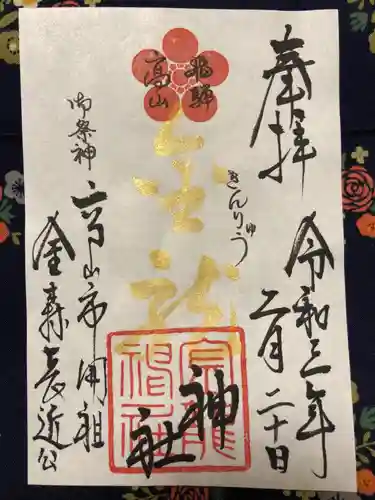 奉拝
令和三年
二月二十日
飛騨
高山
金龍
きんりゅう
神社
金龍神社
御祭神
高山市開祖
金森長近公